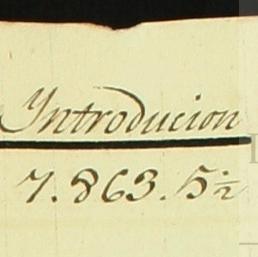 Introducion
7.863.5½